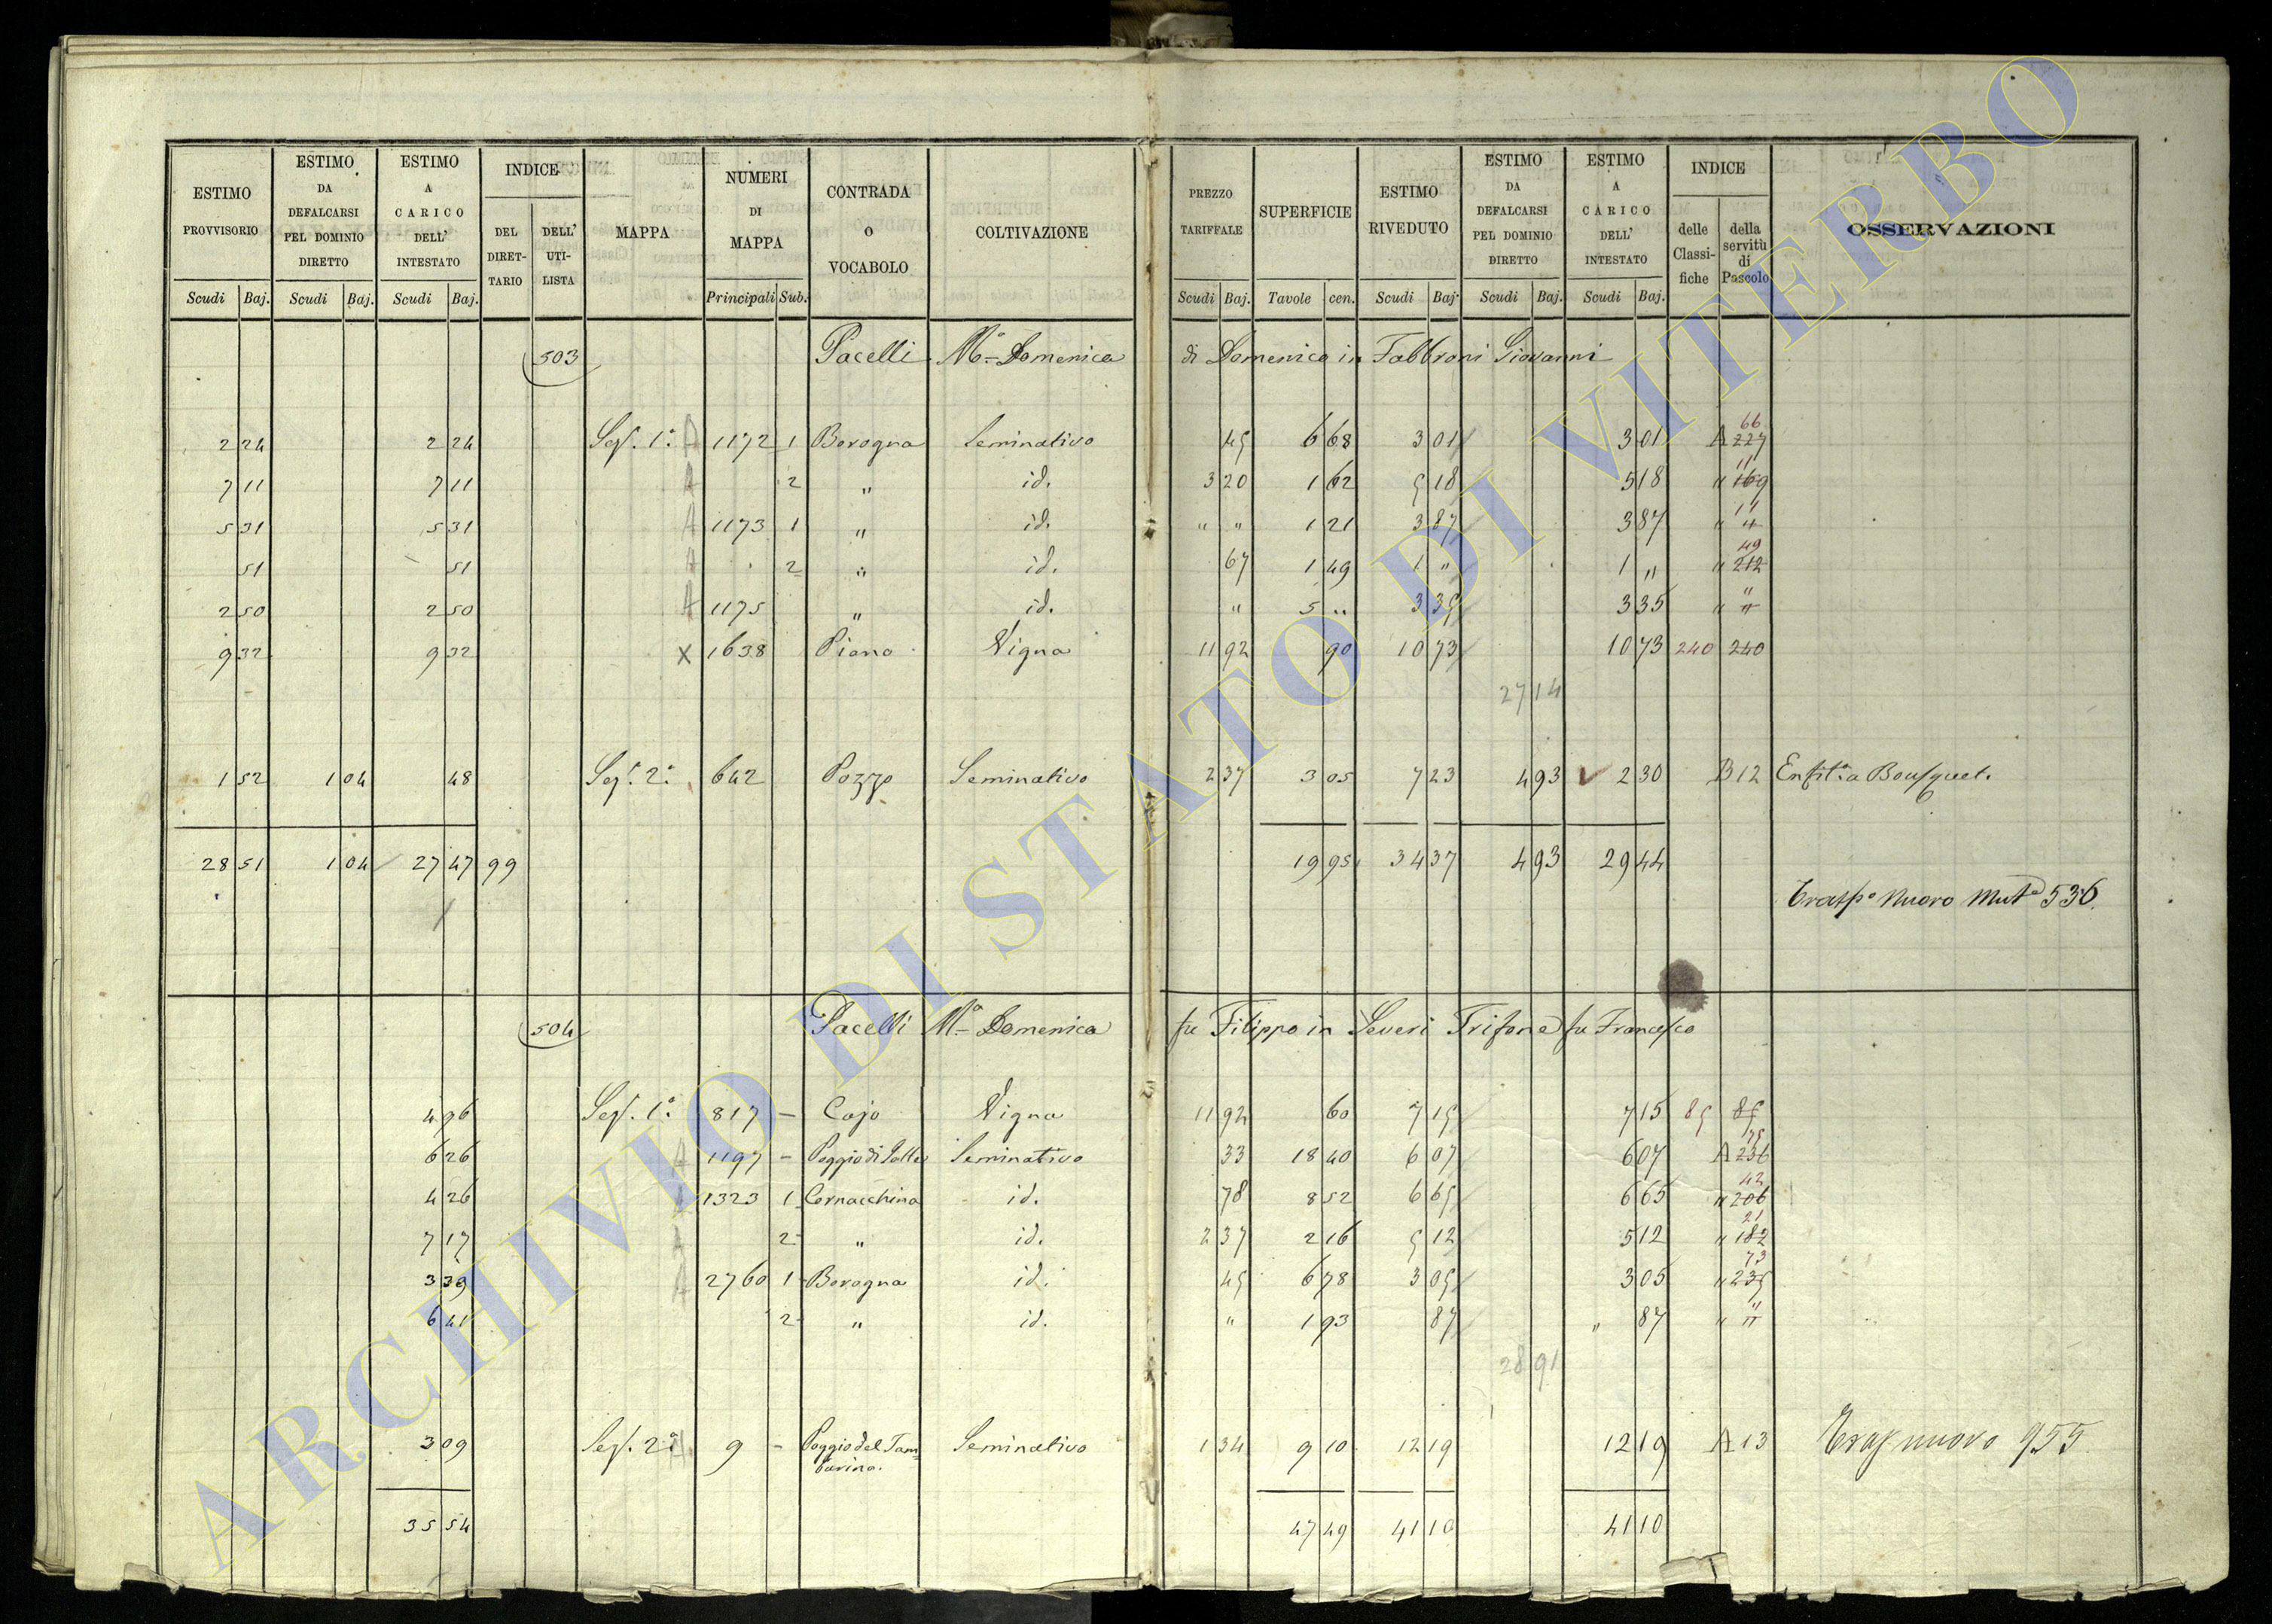 ESTIMO PROVVISORIO | ESTIMO DA DEFALCARSI PEL DOMINIO DIRETTO | ESTIMO A CARICO DELL' INTESTATO | INDICE DEL DIRETTARIO | DELL' UTILISTA | MAPPA | NUMERI DI MAPPA | CONTRADA O VOCABOLO | COLTIVAZIONE | PREZZO TARIFFALE | SUPERFICIE | ESTIMO RIVEDUTO | ESTIMO DA DEFALCARSI PEL DOMINIO DIRETTO | ESTIMO A CARICO DELL' INTESTATO | INDICE delle Classifiche | della servitù di Pascolo | OSSERVAZIONI
Scudi Baj. | Scudi Baj. | Scudi Baj. | Principali Sub. | Scudi Baj. | Tavole cen. | Scudi Baj. | Scudi Baj. | Scudi Baj.
503 Pacelli Mª Domenica di Domenico in Fabbroni Giovanni
2 24 | 2 24 | Sez. 1ª A | 1172 1 | Borogna | Seminativo | 45 | 6 68 | 3 01 | 3 01 | A 227 66
7 11 | 7 11 | A | 2 | " | id. | 3 20 | 1 62 | 5 18 | 5 18 | " 169 11
5 31 | 5 31 | A | 1173 1 | " | id. | " " | 1 21 | 3 87 | 3 87 | " " 11
51 | 51 | A | 2 | " | id. | 67 | 1 49 | 1 " | 1 " | " 212 49
2 50 | 2 50 | A | 1175 | " | id. | " | 5 " | 3 35 | 3 35 | " " "
9 32 | 9 32 | X | 1638 | Piano | Vigna | 11 92 | 90 | 10 73 | 10 73 | 240 | 240
27 14
1 52 | 1 04 | 48 | Sez. 2ª | 642 | Pozzo | Seminativo | 2 37 | 3 05 | 7 23 | 4 93 | 2 30 | B 12 | Enfit.a Bousquet.
28 51 | 1 04 | 27 47 | 99 | 19 95 | 34 37 | 4 93 | 29 44
Trasp.o Nuovo Mut.e 536
504 Pacelli Mª Domenica fu Filippo in Severi Trifone fu Francesco
4 96 | Sez. 1ª | 817 – | Cajo | Vigna | 11 92 | 60 | 7 15 | 7 15 | 85 | 85
6 26 | A | 1197 – | Poggio di | Seminativo | 33 | 18 40 | 6 07 | 6 07 | A 236 75
4 26 | A | 1323 1 | Cornacchina | id. | 78 | 8 52 | 6 65 | 6 65 | " 206 42
7 17 | A | 2 | " | id. | 2 37 | 2 16 | 5 12 | 5 12 | " 182 21
3 39 | A | 2760 1 | Borogna | id. | 45 | 6 78 | 3 05 | 3 05 | " 235 73
6 41 | 2 | " | id. | " | 1 93 | 87 | " 87 | " " "
28 91
3 09 | Sez. 2ª A | 9 – | Poggio del Tam=
burino. | Seminativo | 1 34 | 9 10 | 12 19 | 12 19 | A 13 | Trasp nuovo 955
35 54 | 47 49 | 41 10 | 41 10
ARCHIVIO DI STATO DI VITERBO